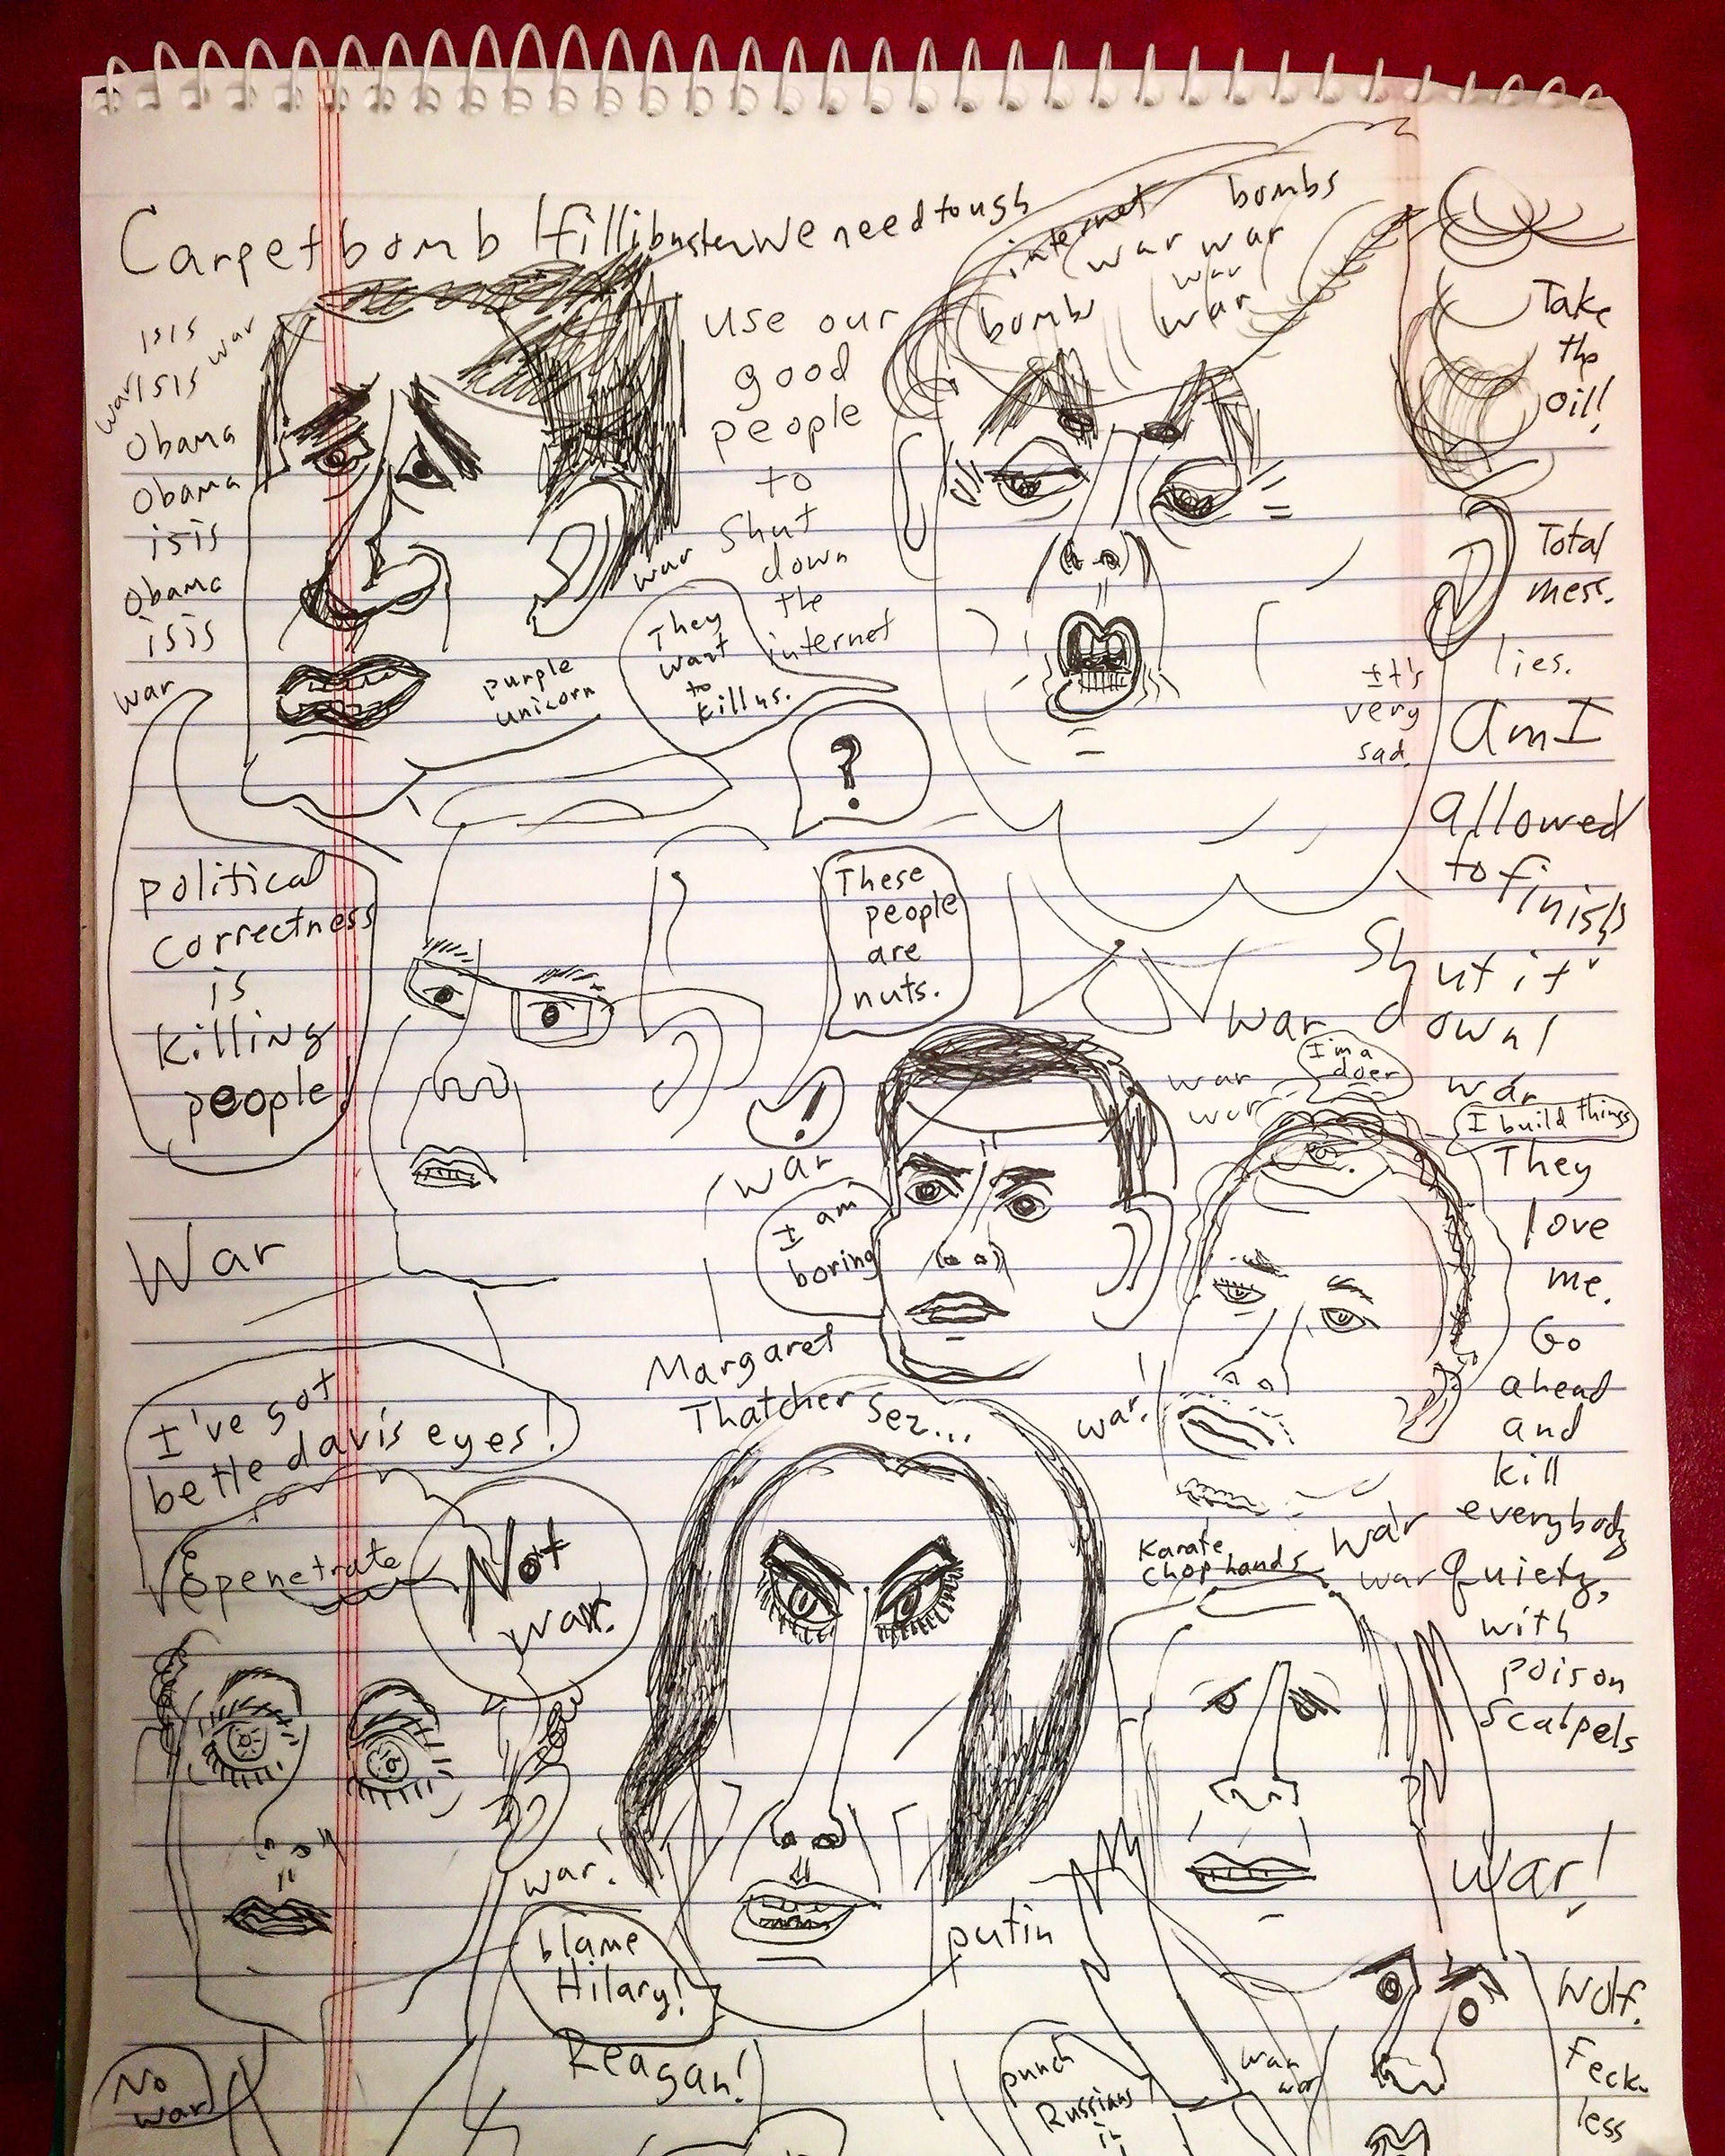 Carpet bomb fillibuster We need tough
ISIS
war
war ISIS
Obama
Obama
isis
Obama
isis
war
use our
good
people
to
Shut
down
the
internet
internet bombs
war war
war
bombs war
Take
the
oil!
Total
mess.
lies.
It's
very
sad.
am I
allowed
to finish
Shut it
down!
war
They
want
to
kill us.
purple
unicorn
?
political
correctness
is
killing
people
These
people
are
nuts.
!
war
I am
boring
war
war
war
I'm a
doer
war
I build things
They
love
me.
Go
ahead
and
kill
everybody
Quietly,
with
poison
Scalpels
War
Margaret
Thatcher Sez...
war!
I've got
bette davis eyes!
penetrate
Not
war.
Karate
chop hands
war
war
war!
war!
blame
Hilary!
Reagan!
putin
No
war
punch
Russians
in
war
war
Wolf.
Feck-
less